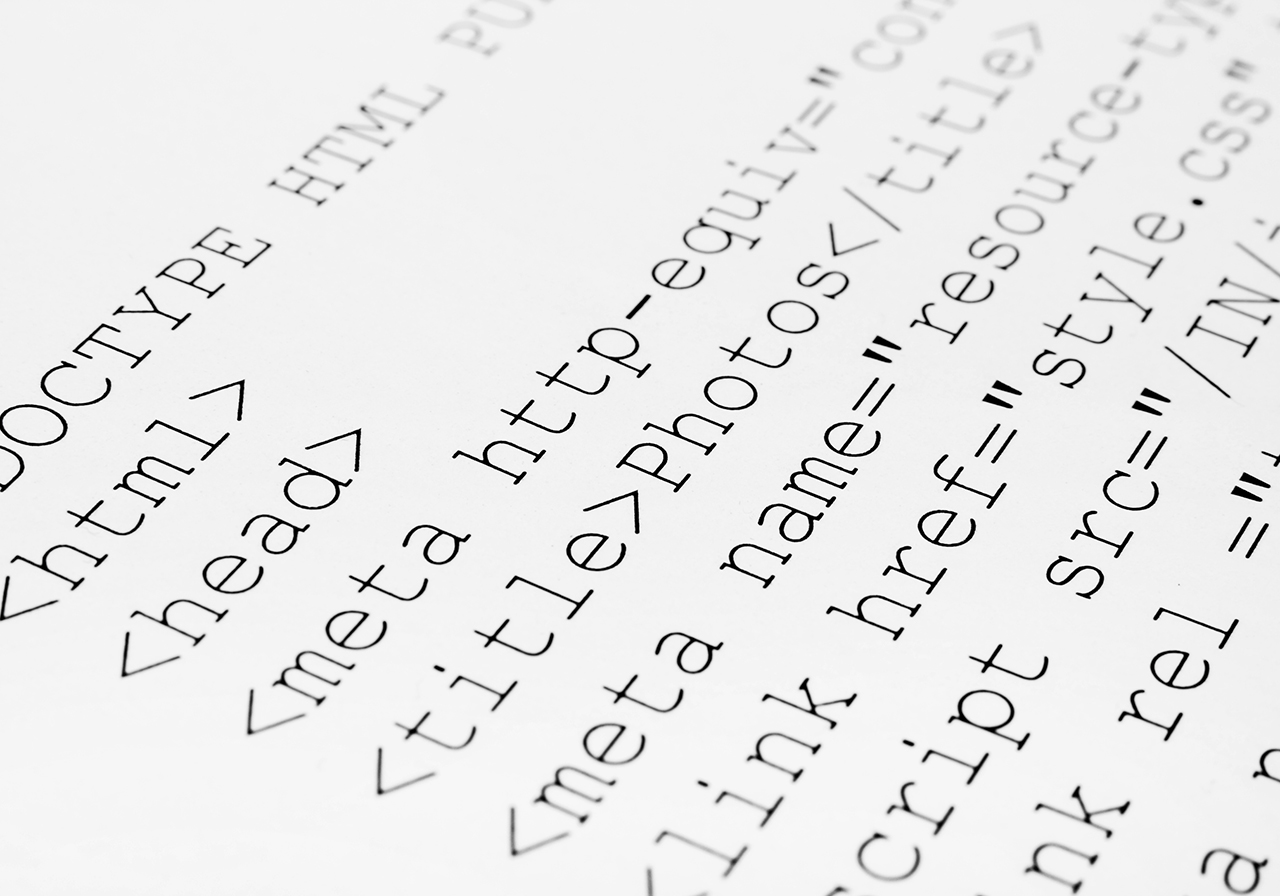 DOCTYPE HTML PU
<html>
<head>
<meta http-equiv="con
<title>Photos</title>
<meta name="resource-typ
<link href="style.css"
cript src="/IN/
nk rel ="
a